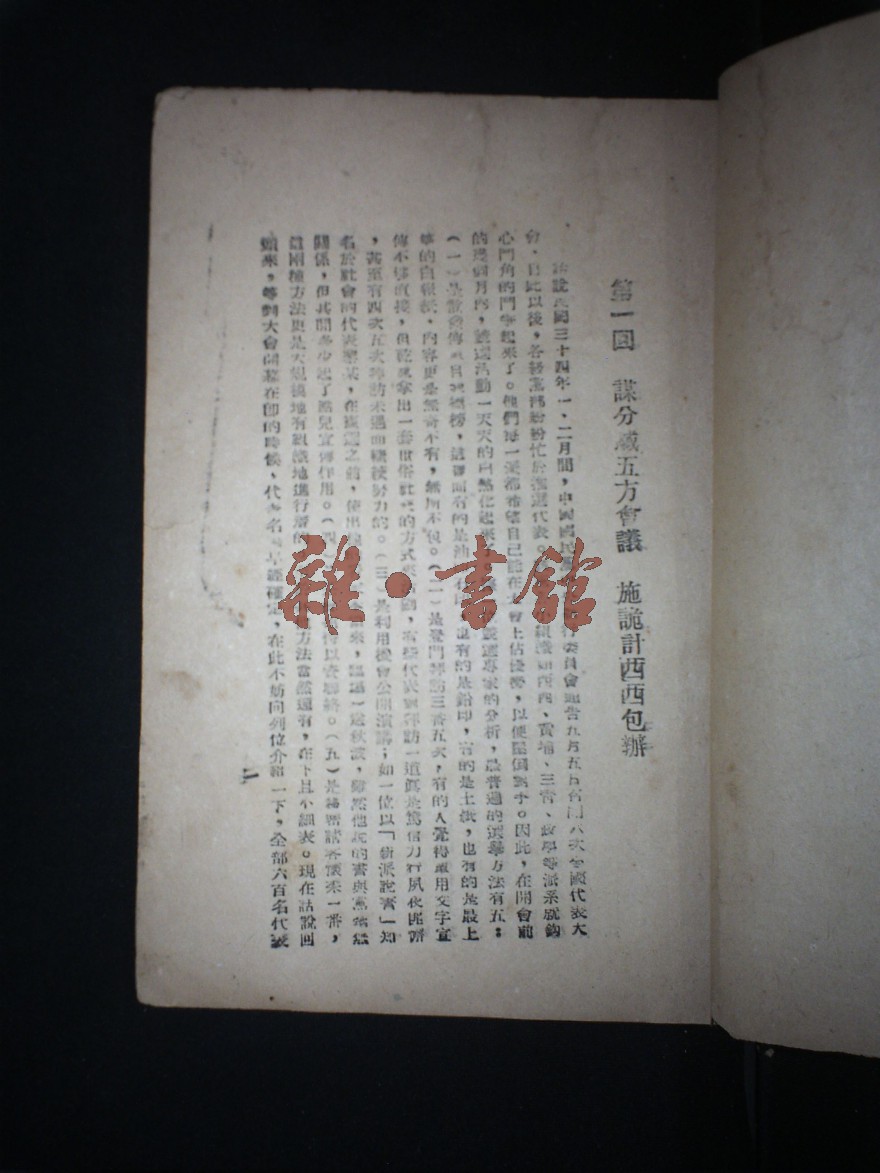 第一回　謀分贓五方會議　施詭計西西包辦
話說民國三十四年一、二月間，中國國民黨 行委員會通告九月五日召開六次全國代表大
會，自此以後，各級黨部紛紛忙於競選代表。 組織如西西、黃埔、三青、政學等派系就鈎
心鬥角的鬥爭起來了。他們每一派都希望自己能在大會上佔優勢，以便壓倒對手。因此，在開會前
的幾個月內，競選活動一天天的白熱化起來了。 競選專家的分析，最普通的選舉方法有五：
（一）是散發傳單自我標榜，這裡面有的是油 也有的是鉛印，有的是土紙，也有的是最上
等的白報紙，內容更是無奇不有，無所不包。（二）是登門拜訪三番五次，有的人覺得專用文字宣
傳不够直接，但乾脆拿出一套世俗社交的方式來 有些代表 拜訪一道真是篤信力行夙夜匪懈
，甚至有四次五次拜訪未遇而繼續努力的。（三）是利用機會公開演講；如一位以「新派說書」知
名於社會的代表 某，在競選之前，使出 來，認還一送秋波，雖然他說的書與黨 無
關係，但其間多少起了點兒宣傳作用。（四） 以資聯絡。（五）是 請客懷柔一番，
這兩種方法更是大規模地有組織地進行着的 方法當然還有，在下且不細表。現在話說回
頭來，等到大會開幕在即的時候，代表名單早經確定，在此不妨向列位介紹一下，全部六百名代表
一
雜·書館